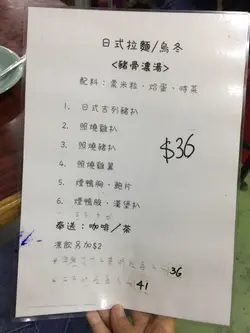 日式拉麵/烏冬
<豬骨濃湯>
配料：粟米粒、焓蛋、時菜
1. 日式吉列豬扒
2. 照燒雞扒
3. 照燒豬扒
4. 照燒雞翼
5. 煙鴨胸、鮑片
6. 煙鴨胸、漢堡扒
$36
奉送：咖啡/茶
凍飲另加$2
36
41